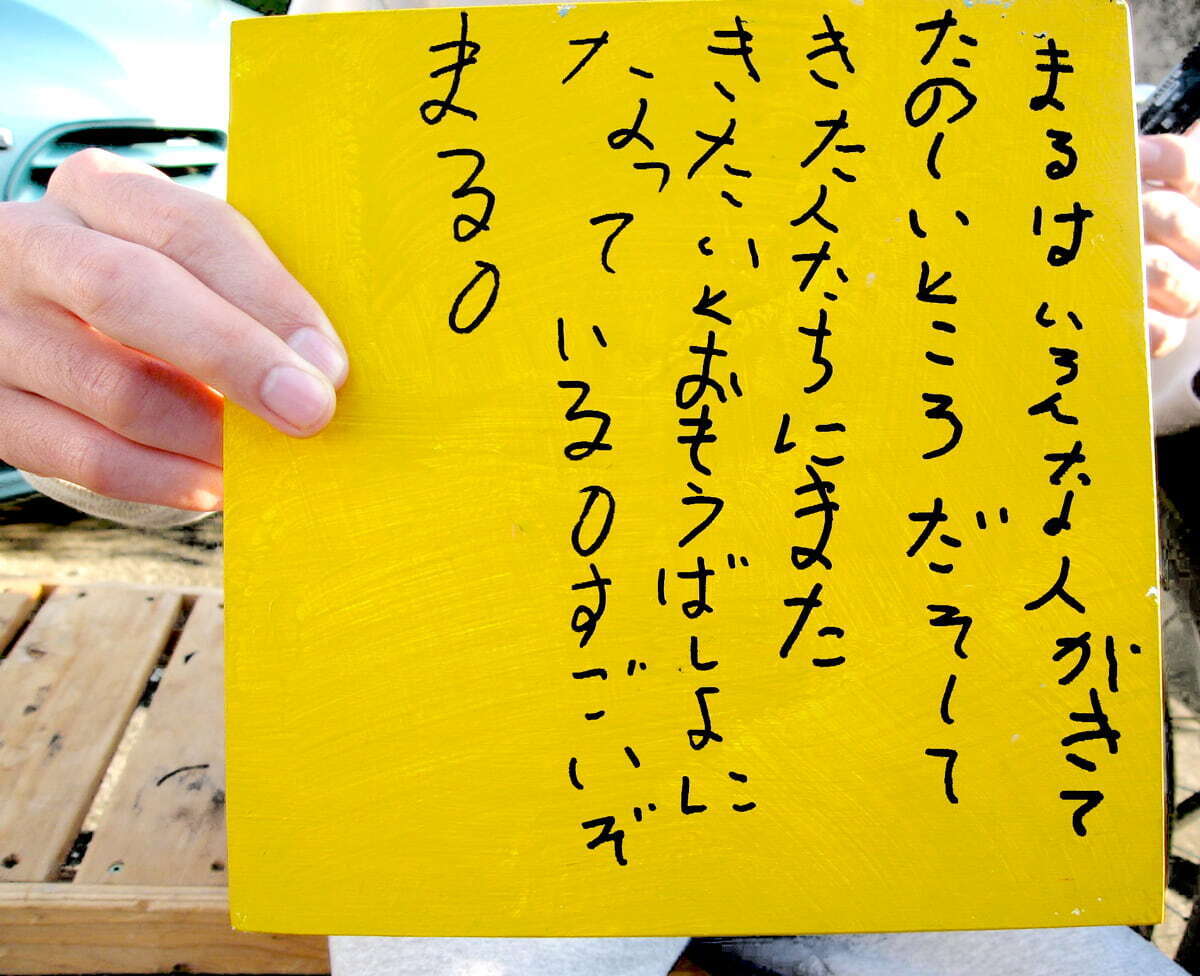 まるはいろんな人がきて
たのしいところだそして
きた人たちにまた
きたいとおもうばしよに
なっている。すごいぞ
まる。